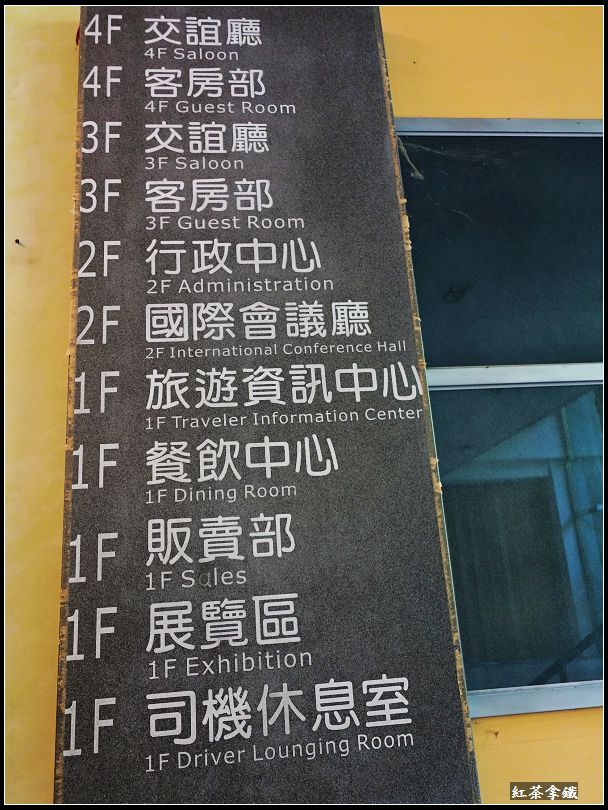 4F 交誼廳
4F Saloon
4F 客房部
4F Guest Room
3F 交誼廳
3F Saloon
3F 客房部
3F Guest Room
2F 行政中心
2F Administration
2F 國際會議廳
2F International Conference Hall
1F 旅遊資訊中心
1F Traveler Information Center
1F 餐飲中心
1F Dining Room
1F 販賣部
1F Sales
1F 展覽區
1F Exhibition
1F 司機休息室
1F Driver Lounging Room
紅茶拿鐵